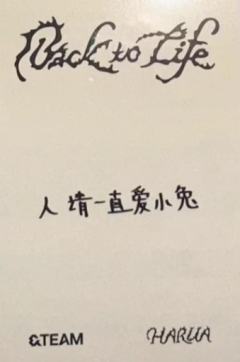 Back to Life
人请一直爱小兔
&TEAM
HARUA